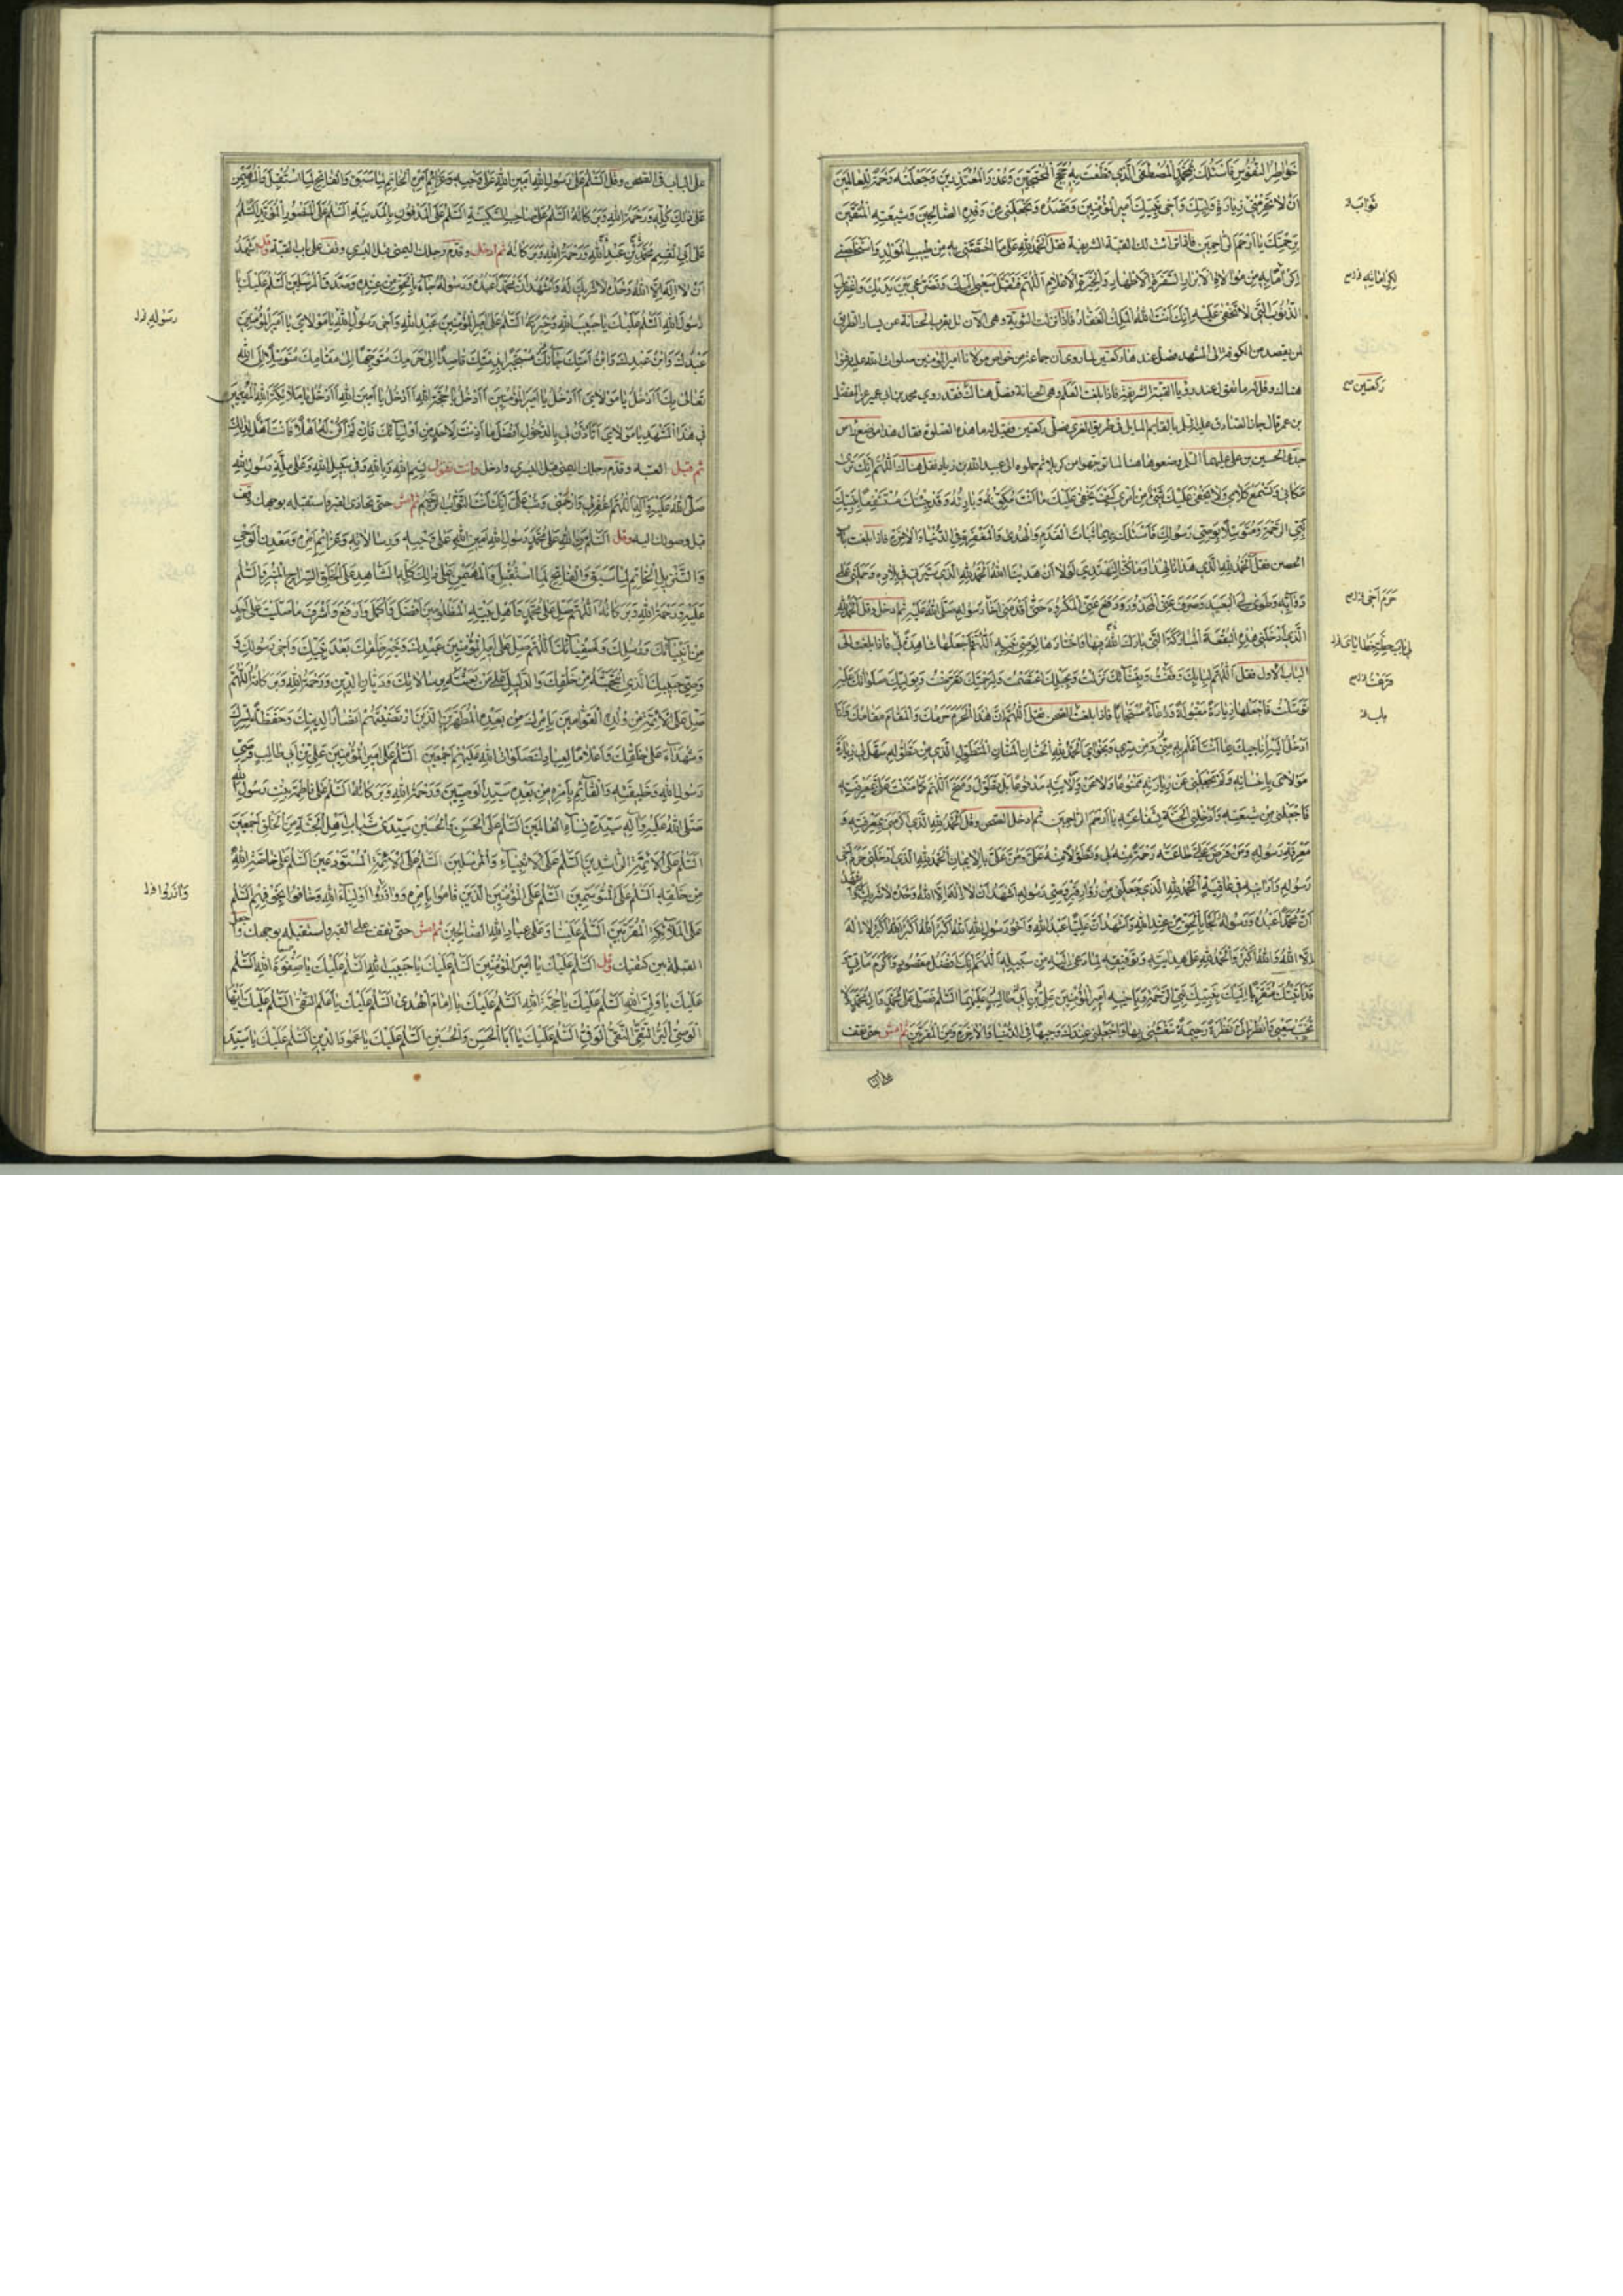 خَوَاطِرُ النُّفُوسِ فَاَسْئَلُكَ بِمُحَمَّدٍ الْمُصْطَفَى الَّذِي قَطَعْتَ بِهِ حُجَجَ الْمُحْتَجِّينَ وَعُذْرَ الْمُعْتَذِرِينَ وَجَعَلْتَهُ رَحْمَةً لِلْعَالَمِينَ
اَنْ لَا تَحْرِمَنِي زِيَارَةَ وَلِيِّكَ وَاَخِي نَبِيِّكَ اَمِيرِ الْمُؤْمِنِينَ وَقَصْدَهُ وَتَجْعَلَنِي مِنْ وَفْدِهِ الصَّالِحِينَ وَشِيعَتِهِ الْمُتَّقِينَ
بِرَحْمَتِكَ يَا اَرْحَمَ الرَّاحِمِينَ فاذا تراءت لك القبّة الشريفة فقل اَلْحَمْدُ لِلّهِ عَلَى مَا اخْتَصَّنِي بِهِ مِنْ طِيبِ الْمَوْلِدِ وَاسْتَخْلَصَنِي
مِنْ مُوَالَاةِ الْاَبْرَارِ السَّفَرَةِ الْاَطْهَارِ وَالْخِيَرَةِ الْاَعْلَامِ اَللّهُمَّ فَتَقَبَّلْ سَعْيِي اِلَيْكَ وَتَضَرُّعِي بَيْنَ يَدَيْكَ وَاغْفِرْ لِيَ
الذُّنُوبَ الَّتِي لَا تَخْفَى عَلَيْكَ اِنَّكَ اَنْتَ اللهُ الْمَلِكُ الْغَفَّارُ فاذا نزلت الثويّة وهي الآن تل بقرب الحنانة عن يسار الطريق
لمن يقصد من الكوفة الى المشهد فصلّ عندها ركعتين لما روي ان جماعة من خواص مولانا امير المؤمنين صلوات الله عليه دفنوا
هناك وقل ما تقول عند رؤيا القبّة الشريفة فاذا بلغت العلم وهي الحنانة فصلّ هناك فقد روي محمد بن ابي عمير عن المفضل
بن عمر قال جاز الصادق عليه السلم بالقايم المايل في طريق الغري فصلّى ركعتين فقيل له ما هذه الصلوة فقال هذا موضع راس
جدي الحسين بن علي عليهما السلم وضعوها هنا لما توجهوا من كربلا ثم حملوه الى عبيد الله بن زياد فقل هناك اَللّهُمَّ اِنَّكَ تَرَى
مَكَانِي وَتَسْمَعُ كَلَامِي وَلَا يَخْفَى عَلَيْكَ شَيْءٌ مِنْ اَمْرِي وَكَيْفَ يَخْفَى عَلَيْكَ مَا اَنْتَ مُكَوِّنُهُ وَبَارِئُهُ وَقَدْ جِئْتُكَ مُسْتَشْفِعًا بِنَبِيِّكَ
نَبِيِّ الرَّحْمَةِ وَمُتَوَسِّلًا بِوَصِيِّ رَسُولِكَ فَاَسْئَلُكَ بِهِمَا ثَبَاتَ الْقَدَمِ وَالْهُدَى وَالْمَغْفِرَةَ فِي الدُّنْيَا وَالْاخِرَةِ فاذا بلغت باب
الحصن فقل اَلْحَمْدُ لِلّهِ الَّذِي هَدَانَا لِهَذَا وَمَا كُنَّا لِنَهْتَدِيَ لَوْلَا اَنْ هَدَيْنَا اللهُ اَلْحَمْدُ لِلّهِ الَّذِي سَيَّرَنِي فِي بِلَادِهِ وَحَمَلَنِي عَلَى
دَوَابِّهِ وَطَوَى لِيَ الْبَعِيدَ وَصَرَفَ عَنِّي الْمَحْذُورَ وَدَفَعَ عَنِّي الْمَكْرُوهَ حَتَّى اَقْدَمَنِي اَخَا رَسُولِهِ صَلَّى اللهُ عَلَيْهِ ثم ادخل وقل اَلْحَمْدُ لِلّهِ
الَّذِي اَدْخَلَنِي هَذِهِ الْبُقْعَةَ الْمُبَارَكَةَ الَّتِي بَارَكَ اللهُ فِيهَا وَاخْتَارَهَا لِوَصِيِّ نَبِيِّهِ اَللّهُمَّ فَاجْعَلْهَا شَاهِدَةً لِي فاذا بلغت الى
الباب الاول فقل اَللّهُمَّ لِبَابِكَ وَقَفْتُ وَبِفِنَائِكَ نَزَلْتُ وَبِحَبْلِكَ اعْتَصَمْتُ وَلِرَحْمَتِكَ تَعَرَّضْتُ وَبِوَلِيِّكَ صَلَوَاتُكَ عَلَيْهِ
تَوَسَّلْتُ فَاجْعَلْهَا زِيَارَةً مَقْبُولَةً وَدُعَاءً مُسْتَجَابًا فاذا بلغت الصحن فقل اَللّهُمَّ اِنَّ هَذَا الْحَرَمَ حَرَمُكَ وَالْمَقَامَ مَقَامُكَ وَاَنَا
اَدْخُلُ اِلَيْهِ اُنَاجِيكَ بِمَا اَنْتَ اَعْلَمُ بِهِ مِنِّي وَمِنْ سِرِّي وَنَجْوَايَ اَلْحَمْدُ لِلّهِ الْحَنَّانِ الْمَنَّانِ الْمُتَطَوِّلِ الَّذِي مِنْ تَطَوُّلِهِ سَهَّلَ لِي زِيَارَةَ
مَوْلَايَ بِاِحْسَانِهِ وَلَمْ يَجْعَلْنِي عَنْ زِيَارَتِهِ مَمْنُوعًا وَلَا عَنْ وِلَايَتِهِ مَدْفُوعًا بَلْ تَطَوَّلَ وَمَنَحَ اَللّهُمَّ كَمَا مَنَنْتَ عَلَيَّ بِمَعْرِفَتِهِ
فَاجْعَلْنِي مِنْ شِيعَتِهِ وَاَدْخِلْنِي الْجَنَّةَ بِشَفَاعَتِهِ يَا اَرْحَمَ الرَّاحِمِينَ ثم ادخل الصحن وقل اَلْحَمْدُ لِلّهِ الَّذِي اَكْرَمَنِي بِمَعْرِفَتِهِ وَ
مَعْرِفَةِ رَسُولِهِ وَمَنْ فَرَضَ عَلَيَّ طَاعَتَهُ رَحْمَةً مِنْهُ لِي وَتَطَوُّلًا مِنْهُ عَلَيَّ وَمَنَّ عَلَيَّ بِالْاِيمَانِ اَلْحَمْدُ لِلّهِ الَّذِي اَدْخَلَنِي حَرَمَ اَخِي
رَسُولِهِ وَاَرَانِيهِ فِي عَافِيَةٍ اَلْحَمْدُ لِلّهِ الَّذِي جَعَلَنِي مِنْ زُوَّارِ قَبْرِ وَصِيِّ رَسُولِهِ اَشْهَدُ اَنْ لَا اِلَهَ اِلَّا اللهُ وَحْدَهُ لَا شَرِيكَ لَهُ وَاَشْهَدُ
اَنَّ مُحَمَّدًا عَبْدُهُ وَرَسُولُهُ جَاءَ بِالْحَقِّ مِنْ عِنْدِ اللهِ وَاَشْهَدُ اَنَّ عَلِيًّا عَبْدُ اللهِ وَاَخُو رَسُولِ اللهِ اَللهُ اَكْبَرُ اَللهُ اَكْبَرُ اَللهُ اَكْبَرُ لَا اِلَهَ
اِلَّا اللهُ وَاللهُ اَكْبَرُ وَالْحَمْدُ لِلّهِ عَلَى هِدَايَتِهِ وَتَوْفِيقِهِ لِمَا دَعَى اِلَيْهِ مِنْ سَبِيلِهِ اَللّهُمَّ اِنَّكَ اَفْضَلُ مَقْصُودٍ وَاَكْرَمُ مَاْتِيٍّ وَ
قَدْ اَتَيْتُكَ مُتَقَرِّبًا اِلَيْكَ بِنَبِيِّكَ نَبِيِّ الرَّحْمَةِ وَبِاَخِيهِ اَمِيرِ الْمُؤْمِنِينَ عَلِيِّ بْنِ اَبِي طَالِبٍ عَلَيْهِمَا السَّلَمُ فَصَلِّ عَلَى مُحَمَّدٍ وَالِ مُحَمَّدٍ وَلَا
تُخَيِّبْ سَعْيِي وَانْظُرْ اِلَيَّ نَظْرَةً رَحِيمَةً تَنْعَشُنِي بِهَا وَاجْعَلْنِي عِنْدَكَ وَجِيهًا فِي الدُّنْيَا وَالْاخِرَةِ وَمِنَ الْمُقَرَّبِينَ ثم امش حتى تقف
على الباب
ثَوَابَهُ
رَكعَتَين
حَرَمَ اَخِي
عَلَى الباب في الصحن وقل اَلسَّلَمُ عَلَى رَسُولِ اللهِ اَمِينِ اللهِ عَلَى وَحْيِهِ وَعَزَائِمِ اَمْرِهِ الْخَاتِمِ لِمَا سَبَقَ وَالْفَاتِحِ لِمَا اسْتُقْبِلَ وَالْمُهَيْمِنِ
عَلَى ذَلِكَ كُلِّهِ وَرَحْمَةُ اللهِ وَبَرَكَاتُهُ اَلسَّلَمُ عَلَى صَاحِبِ السَّكِينَةِ اَلسَّلَمُ عَلَى الْمَدْفُونِ بِالْمَدِينَةِ اَلسَّلَمُ عَلَى الْمَنْصُورِ الْمُؤَيَّدِ اَلسَّلَمُ
عَلَى اَبِي الْقَسِمِ مُحَمَّدِ بْنِ عَبْدِ اللهِ وَرَحْمَةُ اللهِ وَبَرَكَاتُهُ ثم ادخل وقدّم رجلك اليمنى قبل اليسرى وقف على باب القبّة وقل اَشْهَدُ
اَنْ لَا اِلَهَ اِلَّا اللهُ وَحْدَهُ لَا شَرِيكَ لَهُ وَاَشْهَدُ اَنَّ مُحَمَّدًا عَبْدُهُ وَرَسُولُهُ جَاءَ بِالْحَقِّ مِنْ عِنْدِهِ وَصَدَّقَ الْمُرْسَلِينَ اَلسَّلَمُ عَلَيْكَ يَا
رَسُولَ اللهِ اَلسَّلَمُ عَلَيْكَ يَا حَبِيبَ اللهِ وَخِيَرَتَهُ اَلسَّلَمُ عَلَى اَمِيرِ الْمُؤْمِنِينَ عَبْدِ اللهِ وَاَخِي رَسُولِ اللهِ يَا مَوْلَايَ يَا اَمِيرَ الْمُؤْمِنِينَ
عَبْدُكَ وَابْنُ عَبْدِكَ وَابْنُ اَمَتِكَ جَاءَكَ مُسْتَجِيرًا بِذِمَّتِكَ قَاصِدًا اِلَى حَرَمِكَ مُتَوَجِّهًا اِلَى مَقَامِكَ مُتَوَسِّلًا اِلَى اللهِ
تَعَالَى بِكَ ءَاَدْخُلُ يَا مَوْلَايَ ءَاَدْخُلُ يَا اَمِيرَ الْمُؤْمِنِينَ ءَاَدْخُلُ يَا حُجَّةَ اللهِ ءَاَدْخُلُ يَا اَمِينَ اللهِ ءَاَدْخُلُ يَا مَلَائِكَةَ اللهِ الْمُقِيمِينَ
فِي هَذَا الْمَشْهَدِ يَا مَوْلَايَ اَتَاْذَنُ لِي بِالدُّخُولِ اَفْضَلَ مَا اَذِنْتَ لِاَحَدٍ مِنْ اَوْلِيَائِكَ فَاِنْ لَمْ اَكُنْ لَهُ اَهْلًا فَاَنْتَ اَهْلٌ لِذَلِكَ
ثم قبّل العتبة وقدّم رجلك اليمنى قبل اليسرى وادخل وانت تقول بِسْمِ اللهِ وَبِاللهِ وَفِي سَبِيلِ اللهِ وَعَلَى مِلَّةِ رَسُولِ اللهِ
صَلَّى اللهُ عَلَيْهِ وَآلِهِ اَللّهُمَّ اغْفِرْ لِي وَارْحَمْنِي وَتُبْ عَلَيَّ اِنَّكَ اَنْتَ التَّوَّابُ الرَّحِيمُ ثم امش حتى تحاذي القبر واستقبله بوجهك وقف
قبل وصولك اليه وقل اَلسَّلَمُ مِنَ اللهِ عَلَى مُحَمَّدٍ رَسُولِ اللهِ اَمِينِ اللهِ عَلَى وَحْيِهِ وَرِسَالَاتِهِ وَعَزَائِمِ اَمْرِهِ وَمَعْدِنِ الْوَحْيِ
وَالتَّنْزِيلِ الْخَاتِمِ لِمَا سَبَقَ وَالْفَاتِحِ لِمَا اسْتُقْبِلَ وَالْمُهَيْمِنِ عَلَى ذَلِكَ كُلِّهِ الشَّاهِدِ عَلَى الْخَلْقِ السِّرَاجِ الْمُنِيرِ وَالسَّلَمُ
عَلَيْهِ وَرَحْمَةُ اللهِ وَبَرَكَاتُهُ اَللّهُمَّ صَلِّ عَلَى مُحَمَّدٍ وَاَهْلِ بَيْتِهِ الْمَظْلُومِينَ اَفْضَلَ وَاَكْمَلَ وَاَرْفَعَ وَاَشْرَفَ مَا صَلَّيْتَ عَلَى اَحَدٍ
مِنْ اَنْبِيَائِكَ وَرُسُلِكَ وَاَصْفِيَائِكَ اَللّهُمَّ صَلِّ عَلَى اَمِيرِ الْمُؤْمِنِينَ عَبْدِكَ وَخَيْرِ خَلْقِكَ بَعْدَ نَبِيِّكَ وَاَخِي رَسُولِكَ وَ
وَصِيِّ حَبِيبِكَ الَّذِي انْتَجَبْتَهُ مِنْ خَلْقِكَ وَالدَّلِيلِ عَلَى مَنْ بَعَثْتَهُ بِرِسَالَاتِكَ وَدَيَّانِ الدِّينِ وَرَحْمَةُ اللهِ وَبَرَكَاتُهُ اَللّهُمَّ
صَلِّ عَلَى الْاَئِمَّةِ مِنْ وُلْدِهِ الْقَوَّامِينَ بِاَمْرِكَ مِنْ بَعْدِهِ الْمُطَهَّرِينَ الَّذِينَ ارْتَضَيْتَهُمْ اَنْصَارًا لِدِينِكَ وَحَفَظَةً لِسِرِّكَ
وَشُهَدَاءَ عَلَى خَلْقِكَ وَاَعْلَامًا لِعِبَادِكَ صَلَوَاتُ اللهِ عَلَيْهِمْ اَجْمَعِينَ اَلسَّلَمُ عَلَى اَمِيرِ الْمُؤْمِنِينَ عَلِيِّ بْنِ اَبِي طَالِبٍ وَصِيِّ
رَسُولِ اللهِ وَخَلِيفَتِهِ وَالْقَائِمِ بِاَمْرِهِ مِنْ بَعْدِهِ سَيِّدِ الْوَصِيِّينَ وَرَحْمَةُ اللهِ وَبَرَكَاتُهُ اَلسَّلَمُ عَلَى فَاطِمَةَ بِنْتِ رَسُولِ اللهِ
صَلَّى اللهُ عَلَيْهِ وَآلِهِ سَيِّدَةِ نِسَاءِ الْعَالَمِينَ اَلسَّلَمُ عَلَى الْحَسَنِ وَالْحُسَيْنِ سَيِّدَيْ شَبَابِ اَهْلِ الْجَنَّةِ مِنَ الْخَلْقِ اَجْمَعِينَ
اَلسَّلَمُ عَلَى الْاَئِمَّةِ الرَّاشِدِينَ اَلسَّلَمُ عَلَى الْاَنْبِيَاءِ وَالْمُرْسَلِينَ اَلسَّلَمُ عَلَى الْاَئِمَّةِ الْمُسْتَوْدَعِينَ اَلسَّلَمُ عَلَى خَاصَّةِ اللهِ
مِنْ خَلْقِهِ اَلسَّلَمُ عَلَى الْمُتَوَسِّمِينَ اَلسَّلَمُ عَلَى الْمُؤْمِنِينَ الَّذِينَ قَامُوا بِاَمْرِهِ وَوَازَرُوا اَوْلِيَاءَ اللهِ وَخَافُوا بِخَوْفِهِمْ اَلسَّلَمُ
عَلَى الْمَلَائِكَةِ الْمُقَرَّبِينَ اَلسَّلَمُ عَلَيْنَا وَعَلَى عِبَادِ اللهِ الصَّالِحِينَ ثم امش حتى تقف على القبر واستقبله بوجهك واجعل
القبلة بين كتفيك وقل اَلسَّلَمُ عَلَيْكَ يَا اَمِيرَ الْمُؤْمِنِينَ اَلسَّلَمُ عَلَيْكَ يَا حَبِيبَ اللهِ اَلسَّلَمُ عَلَيْكَ يَا صِفْوَةَ اللهِ اَلسَّلَمُ
عَلَيْكَ يَا وَلِيَّ اللهِ اَلسَّلَمُ عَلَيْكَ يَا حُجَّةَ اللهِ اَلسَّلَمُ عَلَيْكَ يَا اِمَامَ الْهُدَى اَلسَّلَمُ عَلَيْكَ يَا عَلَمَ التُّقَى اَلسَّلَمُ عَلَيْكَ اَيُّهَا
الْوَصِيُّ الْبَرُّ التَّقِيُّ النَّقِيُّ الْوَفِيُّ اَلسَّلَمُ عَلَيْكَ يَا اَبَا الْحَسَنِ وَالْحُسَيْنِ اَلسَّلَمُ عَلَيْكَ يَا عَمُودَ الدِّينِ اَلسَّلَمُ عَلَيْكَ يَا سَيِّدَ
رَسُولِهِ
وَازَرُوا